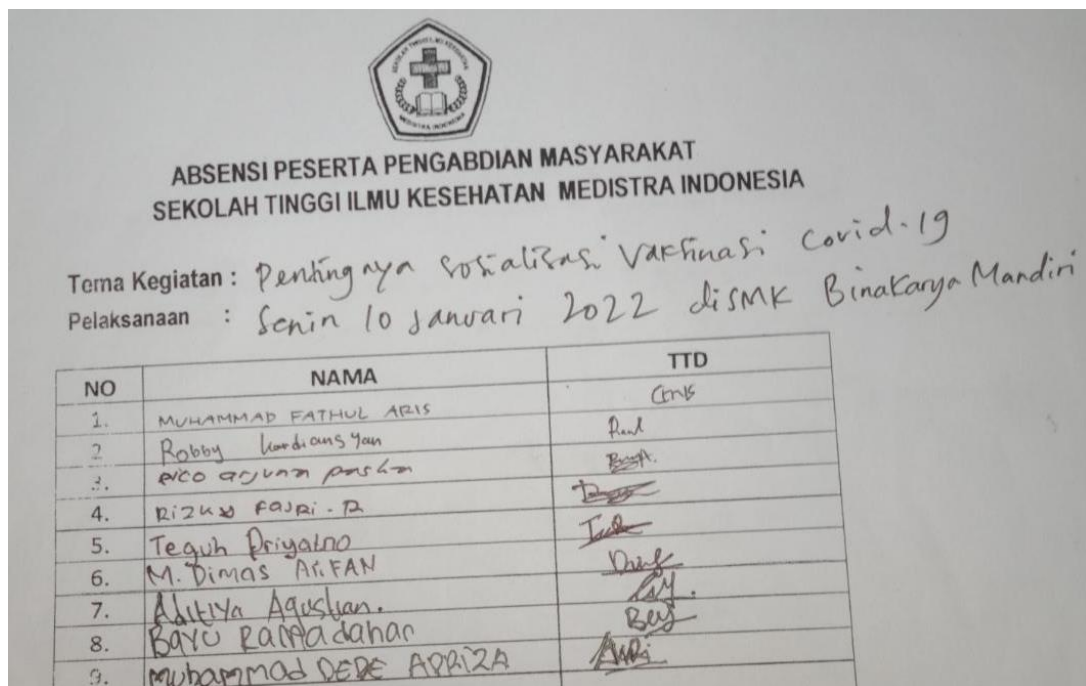 SEKOLAH TINGGI ILMU KESEHATAN
MEDISTRA INDONESIA
ABSENSI PESERTA PENGABDIAN MASYARAKAT
SEKOLAH TINGGI ILMU KESEHATAN MEDISTRA INDONESIA
Tema Kegiatan : Pentingnya sosialisasi Vaksinasi Covid-19
Pelaksanaan : Senin 10 Januari 2022 diSMK BinaKarya Mandiri
NO NAMA TTD
1. MUHAMMAD FATHUL ARIS
2. Robby
3. arjuna pasha
4. Rizky FaJRi . R
5. Teguh Priyatno
6. M. Dimas
7. Aditiya Agustian.
8. Bayu Ramadahan
9. muhammad DEDE APRIZA